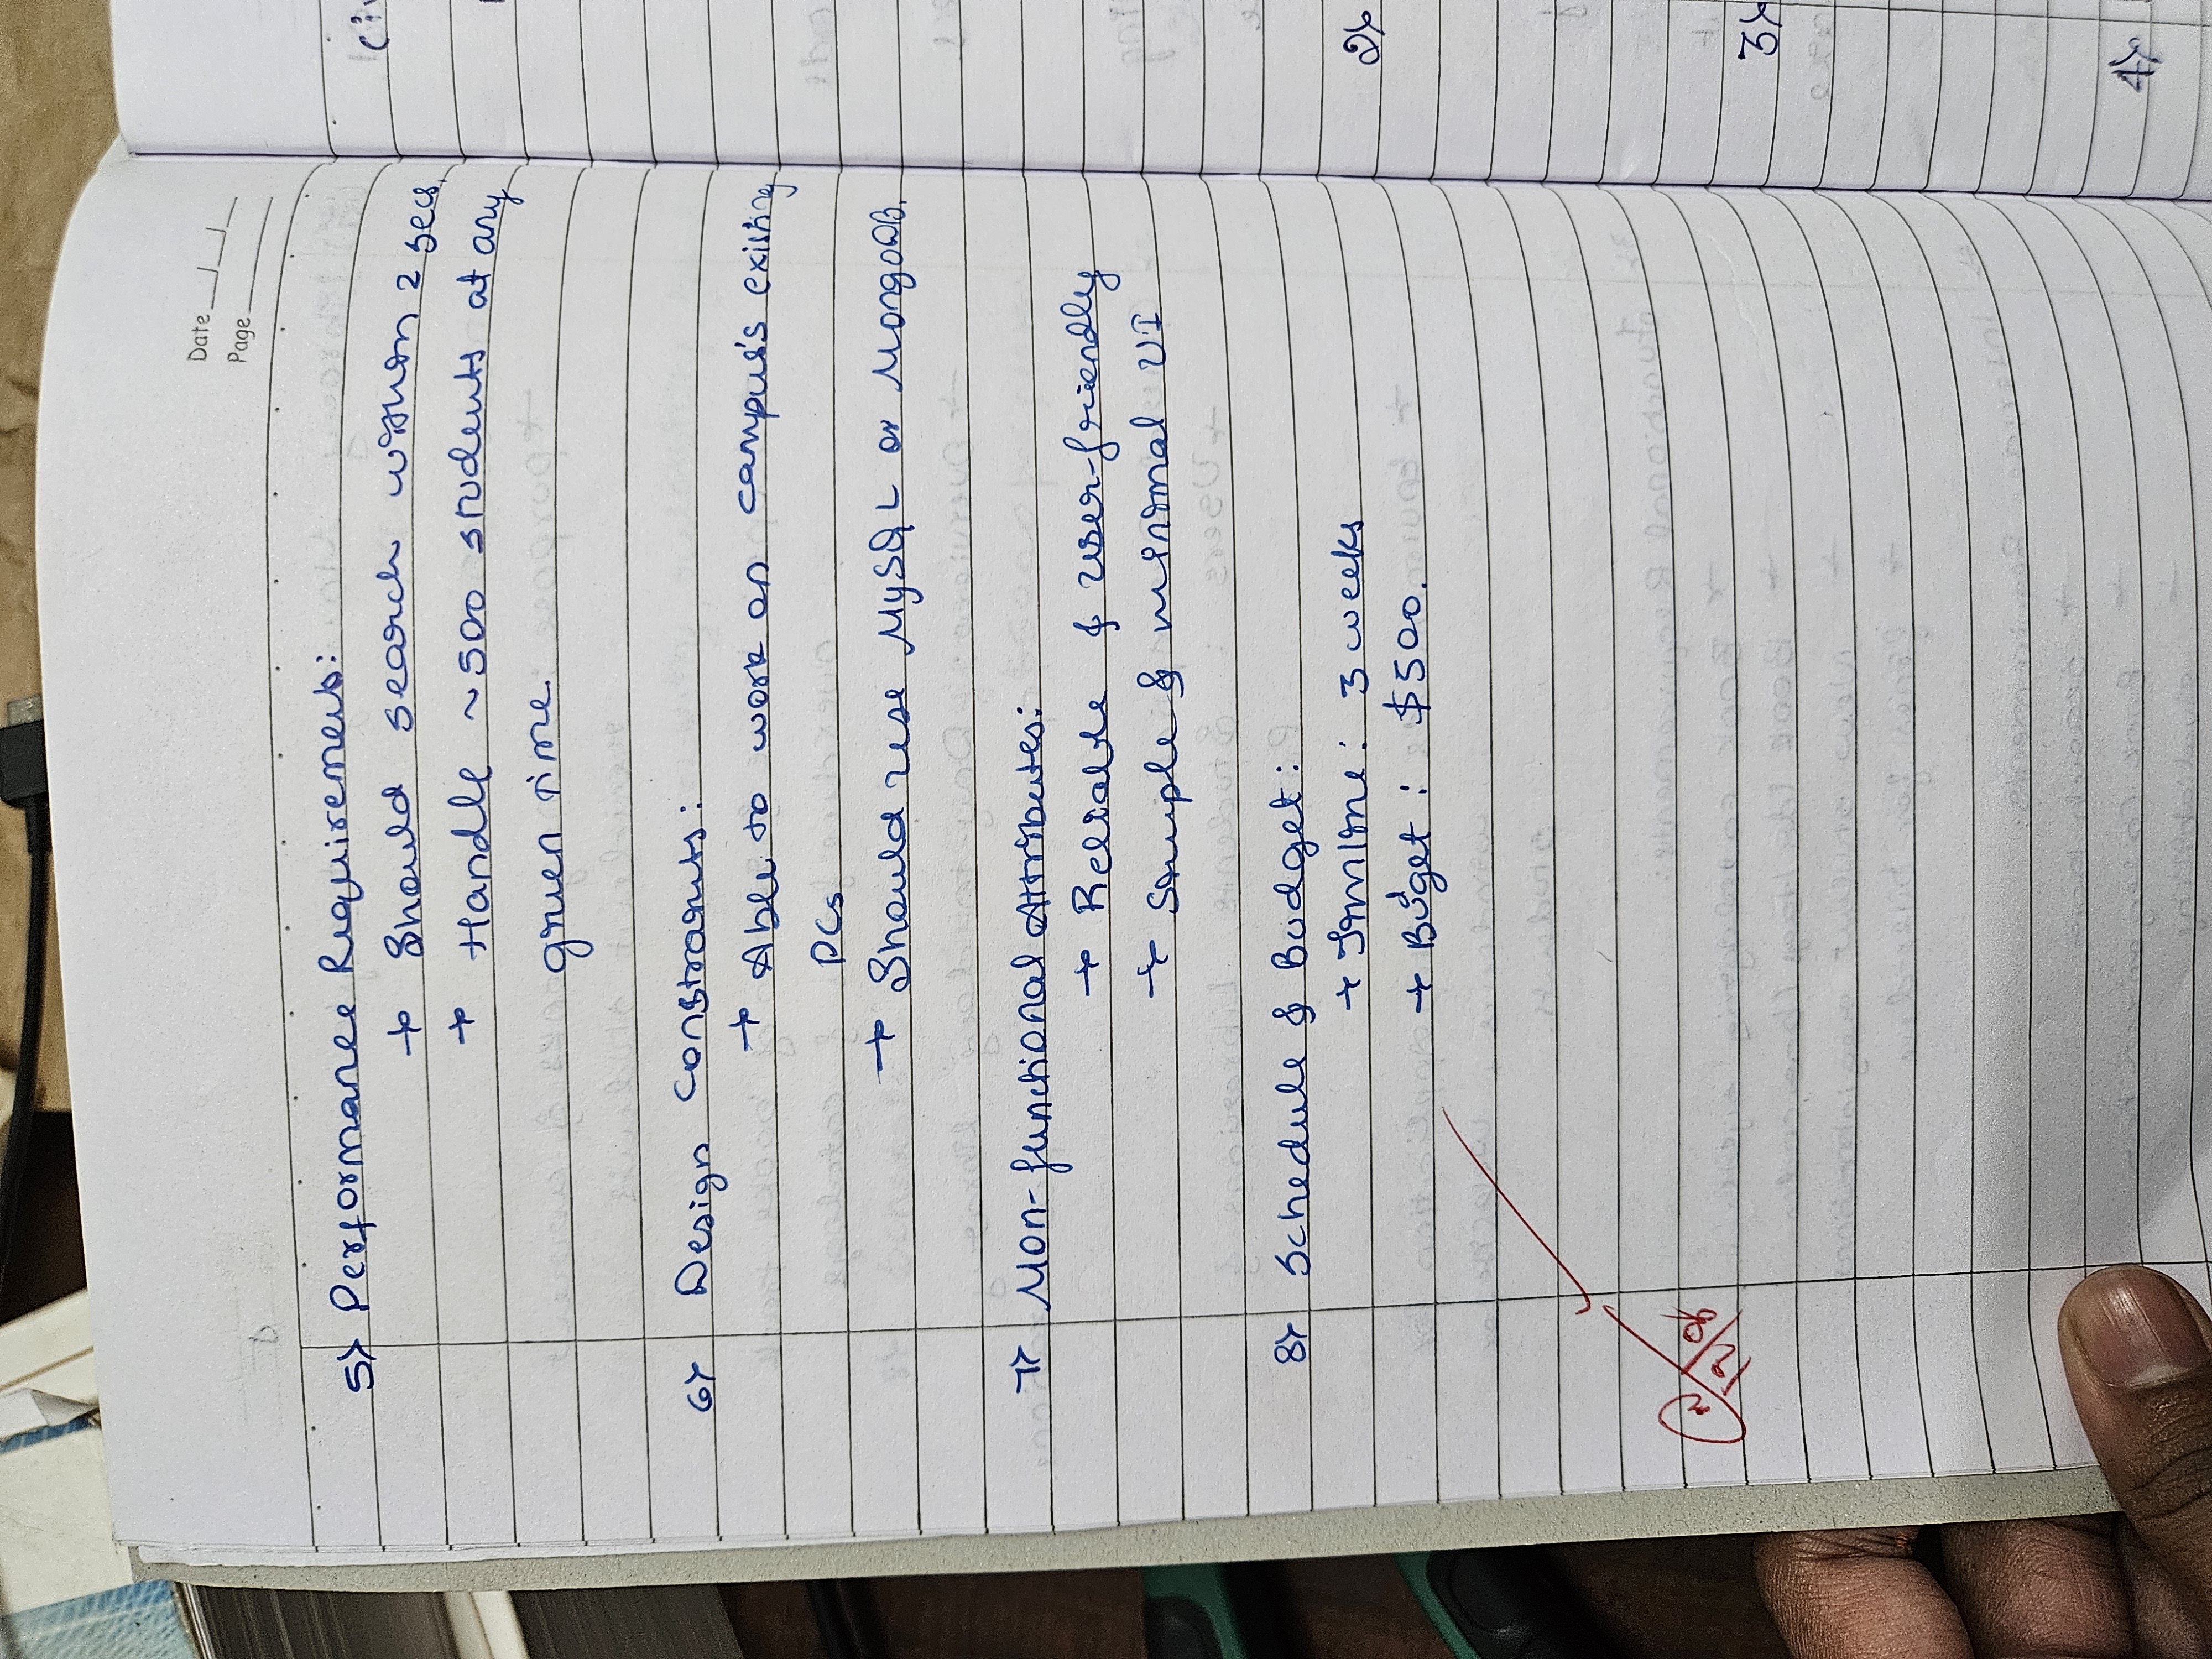 Date
Page
5> Performance Requirements:
→ Should search within 2 secs.
→ Handle ~500 students at any
given time.
6> Design Constraints:
→ Able to work on campus's existing
PCs
→ Should use MySQL or MongoDB.
7> Non-functional Attributes:
→ Reliable & user-friendly
→ Simple & minimal UI
8> Schedule & Budget:
→ Timline: 3 weeks
→ Budget: $500.
12/8
2>
3>
4>